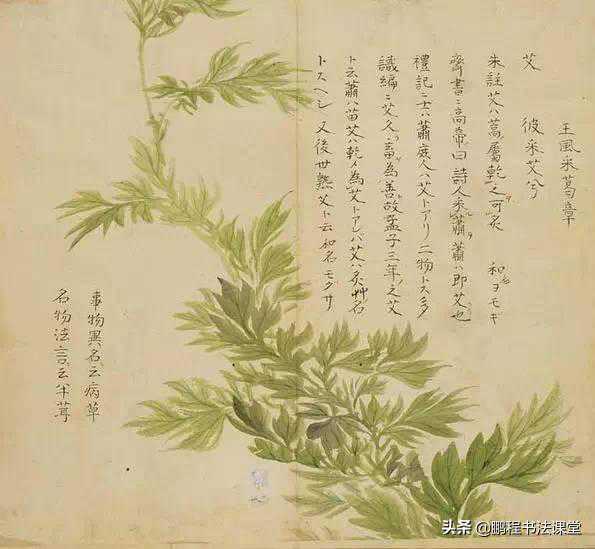 王風采葛章
艾 彼采艾兮
朱註艾ハ蒿屬乾之可灸 和名ヨモギ
齊書ニ高帝曰詩人采蕭蕭ハ即艾也
禮記ニ士ハ蕭庶人ハ艾トアリ二物トス多
識編ニ艾久畜為善故孟子三年ノ之艾
ト云蕭ハ苗艾ハ乾メ為艾トアレバ艾ハ灸艸名
トスヘシ又後世熟艾ト云和名モクサ
事物異名云病草
名物法言云半茸
头条 @鹏程书法课堂